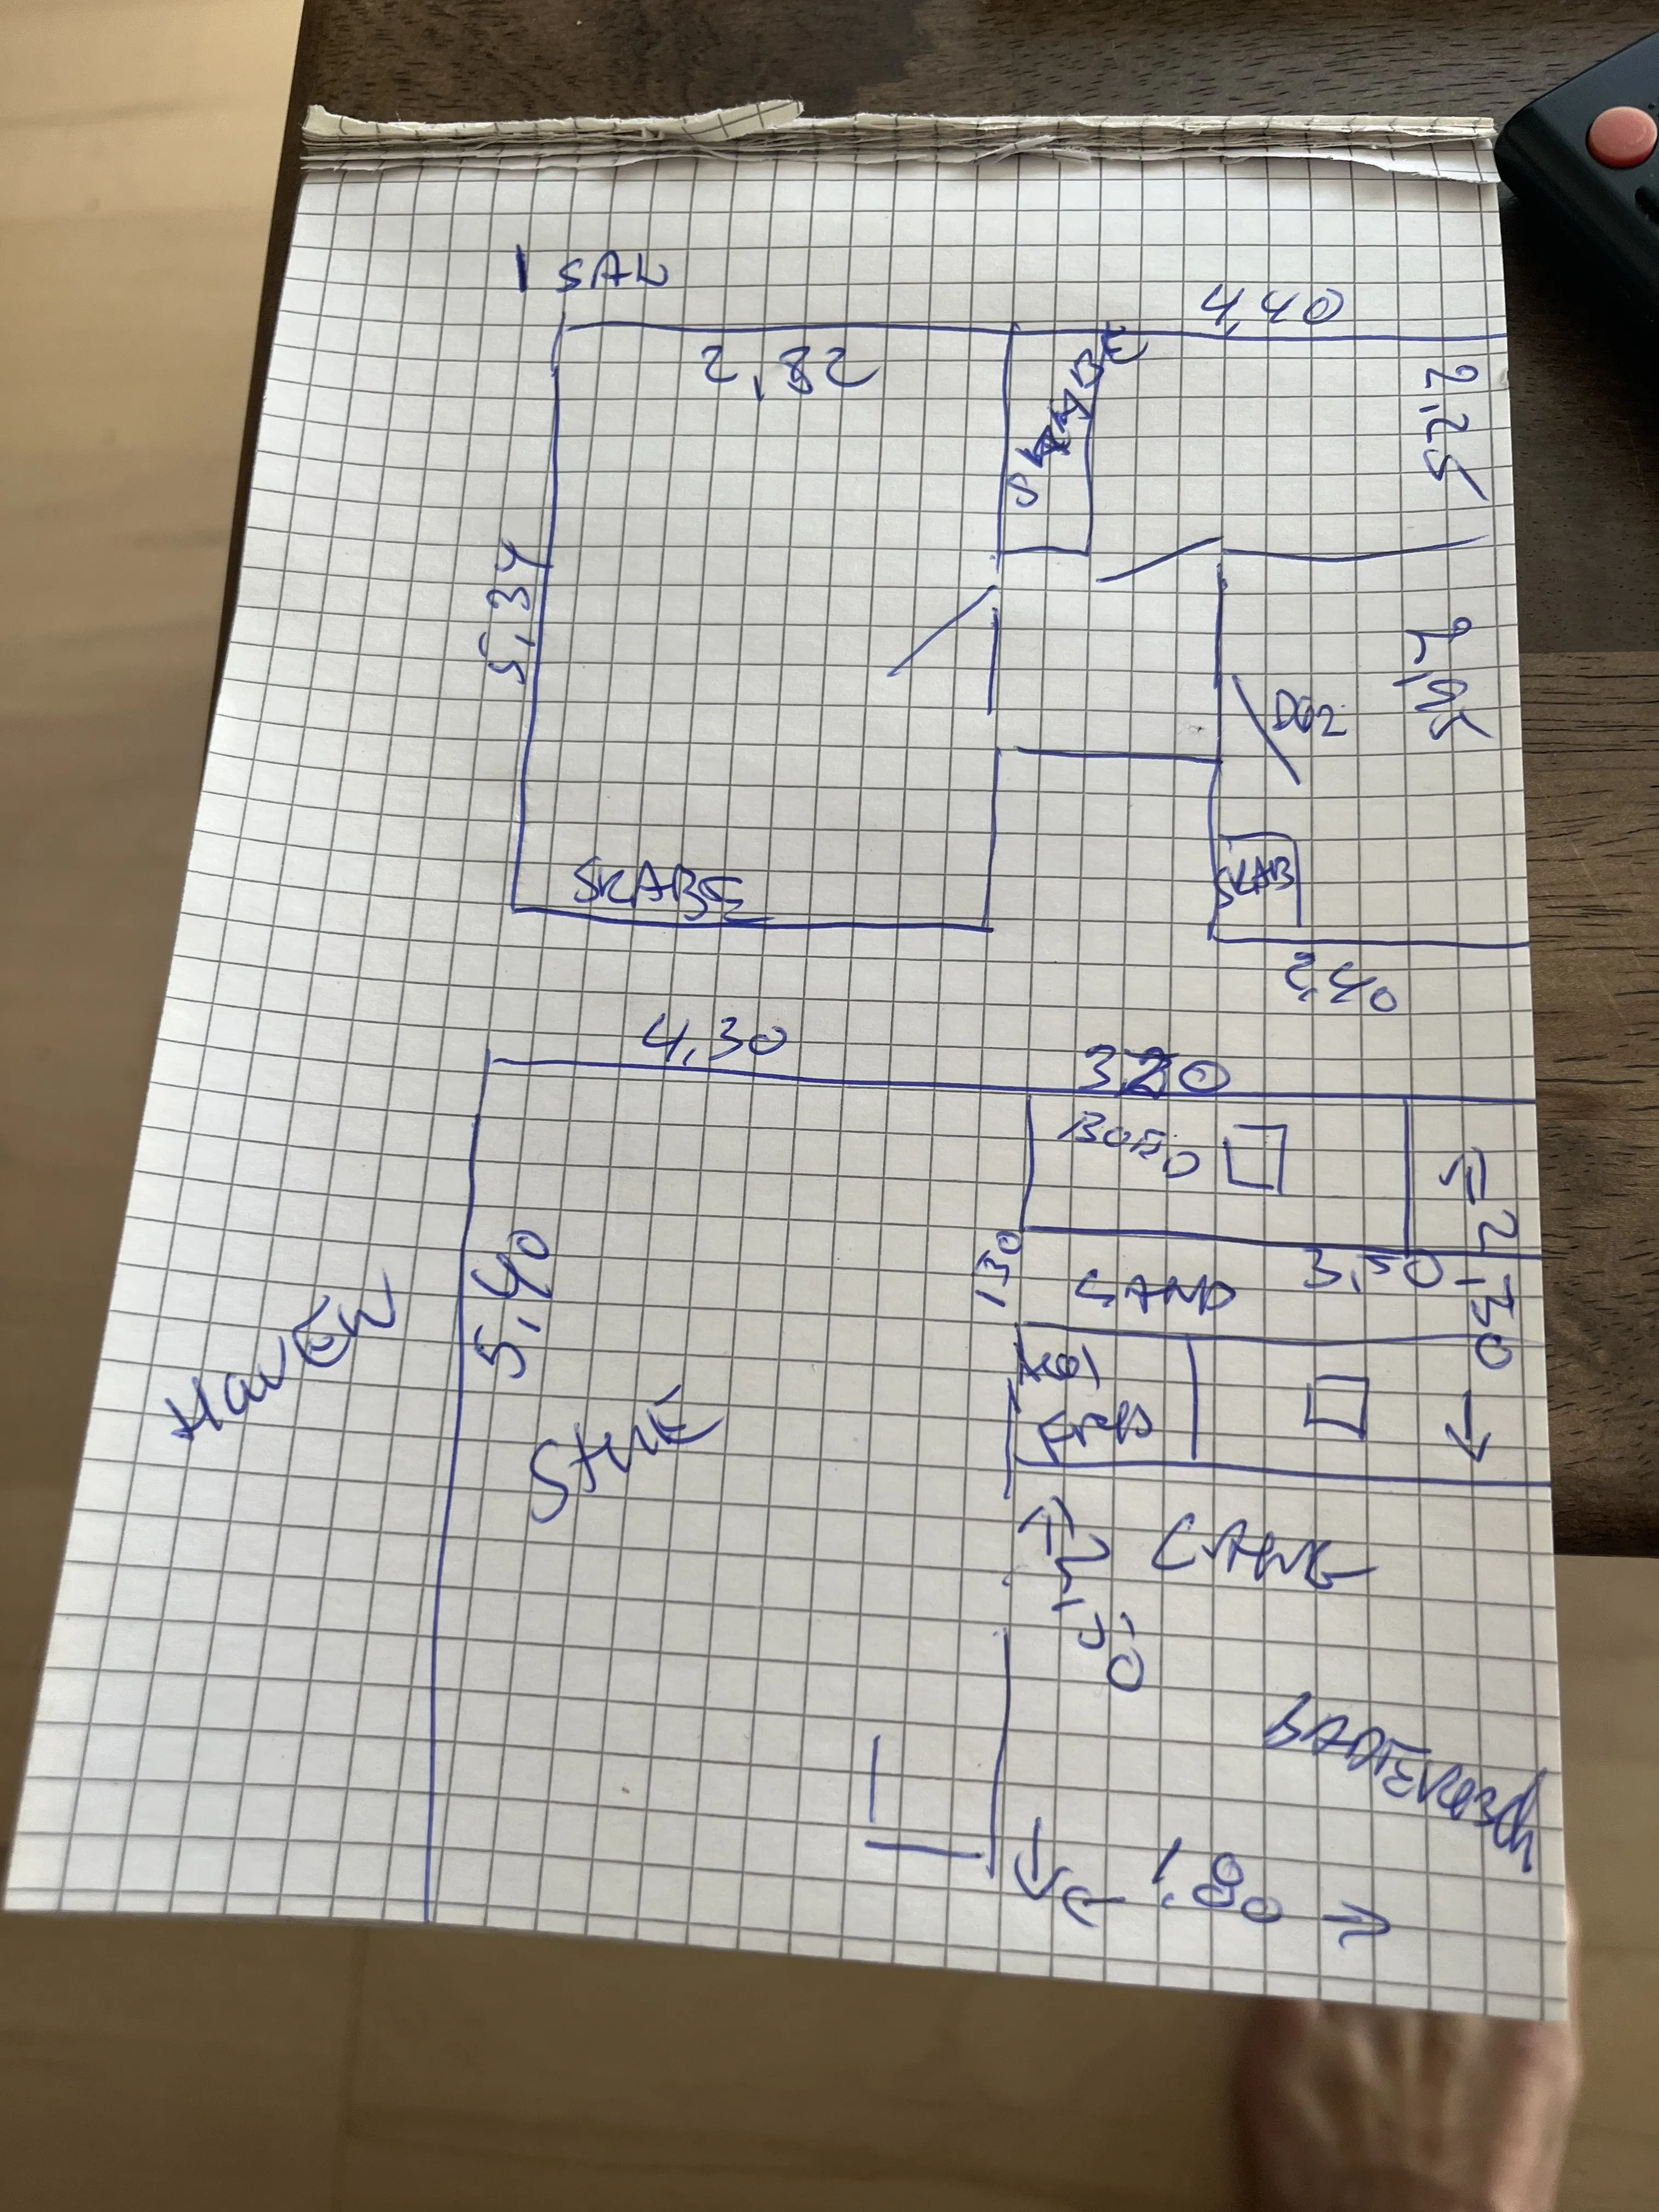 1 SAL
4,40
2,82
SKABE
2,25
5,34
2,95
DØR
SKABE
SKAB
2,40
4,30
320
BORD
5,40
130
GANG
3,50
2,30
HAVEN
STUE
GANG
1,80